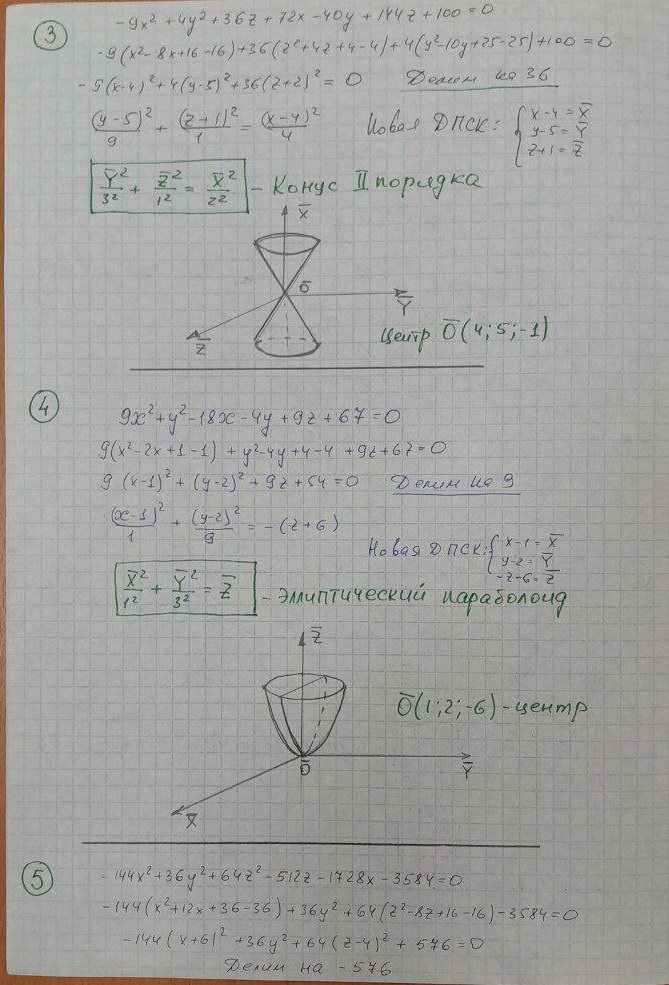 3
-9x² + 4y² + 36z + 72x - 40y + 144z + 100 = 0
-9(x² - 8x + 16 - 16) + 36(z² + 4z + 4 - 4) + 4(y² - 10y + 25 - 25) + 100 = 0
-9(x-4)² + 4(y-5)² + 36(z+2)² = 0 Делим на 36
(y-5)²/9 + (z+1)²/1 = (x-4)²/4 Новая ДПСК: { x-4 = X̄
y-5 = Ȳ
z+1 = Z̄
Ȳ²/3² + Z̄²/1² = X̄²/2² - Конус II порядка
X̄
Ō
Ȳ
Z̄
центр Ō(4; 5; -1)
4
9x² + y² - 18x - 4y + 9z + 67 = 0
9(x² - 2x + 1 - 1) + y² - 4y + 4 - 4 + 9z + 67 = 0
9(x-1)² + (y-2)² + 9z + 54 = 0 Делим на 9
(x-1)²/1 + (y-2)²/9 = -(z+6)
Новая ДПСК: { x-1 = X̄
y-2 = Ȳ
-z-6 = Z̄
X̄²/1² + Ȳ²/3² = Z̄ - эллиптический параболоид
Z̄
Ō(1; 2; -6) - центр
Ō
Ȳ
X̄
5
-144x² + 36y² + 64z² - 512z - 1728x - 3584 = 0
-144(x² + 12x + 36 - 36) + 36y² + 64(z² - 8z + 16 - 16) - 3584 = 0
-144(x+6)² + 36y² + 64(z-4)² + 576 = 0
Делим на -576